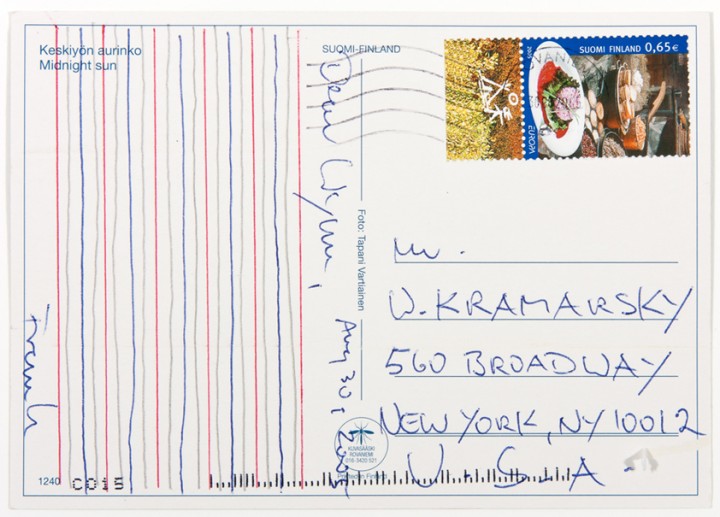 Keskiyön aurinko
Midnight sun
SUOMI-FINLAND
SUOMI FINLAND 0,65€
EUROPA
Dear Wynn,
Aug 30, 2005
Foto: Tapani Vartiainen
Mr.
W. KRAMARSKY
560 BROADWAY
NEW YORK, NY 10012
U-S-A-
KUVASÄÄSKI
ROVANIEMI
1240
C015